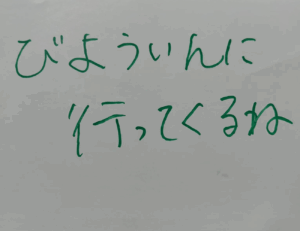 びよういんに
行ってくるね